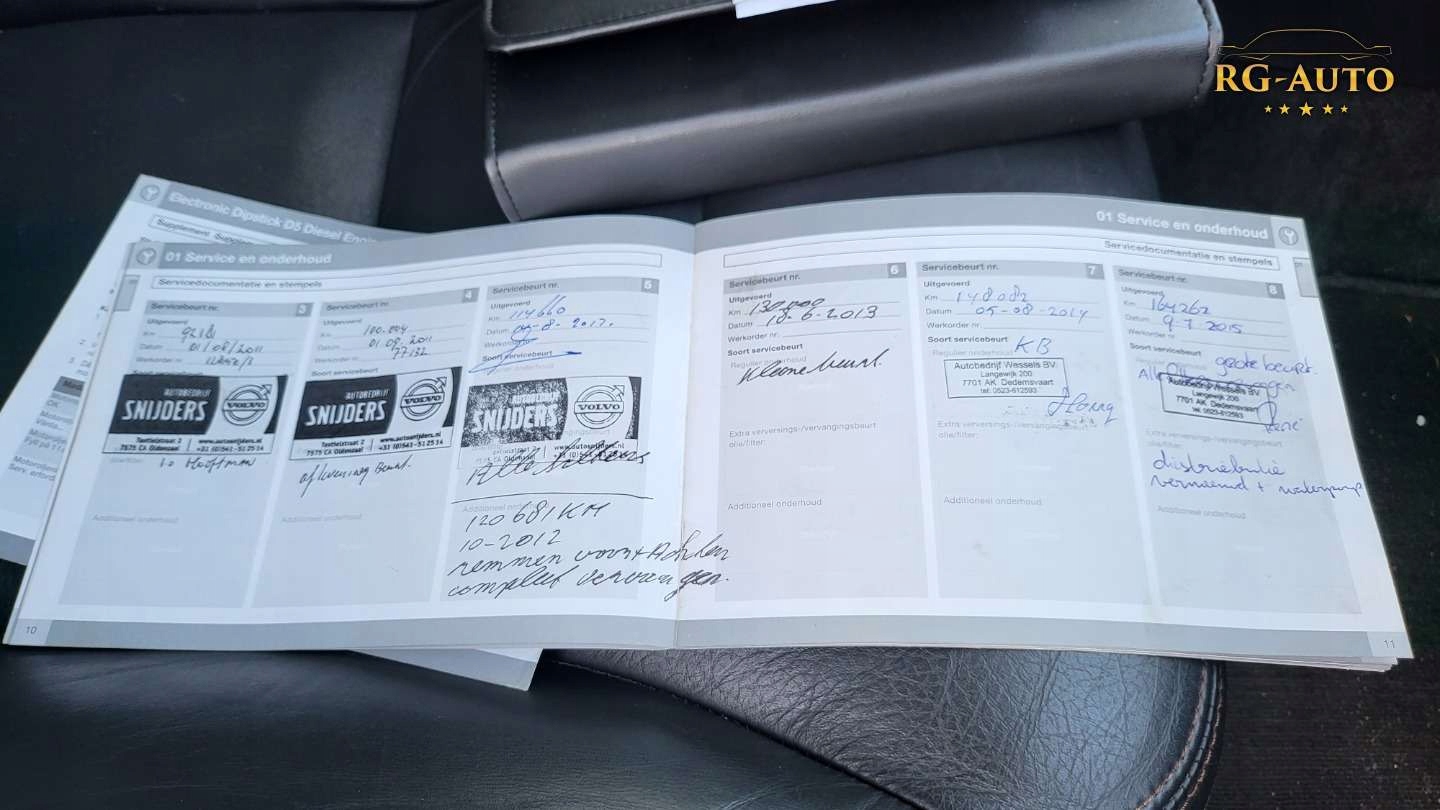 RG-AUTO
Electronic Dipstick D5 Diesel
Supplement
01 Service en onderhoud
Servicedocumentatie en stempels
Servicebeurt nr. 3
Uitgevoerd
Km
Datum 01/08/2011
Werkorder nr
AUTOBEDRIJF
SNIJDERS
VOLVO
Textielstraat 2
7575 CA Oldenzaal
www.autosnijders.nl
+31 (0)541-51 25 14
Additioneel onderhoud
Servicebeurt nr. 4
Uitgevoerd
Km 100.004
Datum 01 09 2011
Werkorder nr 77132
AUTOBEDRIJF
SNIJDERS
VOLVO
Textielstraat 2
7575 CA Oldenzaal
www.autosnijders.nl
+31 (0)541-51 25 14
aflevering Beurt.
Additioneel onderhoud
Servicebeurt nr. 5
Uitgevoerd
Km 114660
Datum 08-8-2012.
Werkorder nr
Soort servicebeurt
AUTOBEDRIJF
SNIJDERS
VOLVO
7575 CA Oldenzaal
www.autosnijders.nl
+31 (0)541-51 25 14
Alle filters
Additioneel
120 681 KM
10-2012
remmen voor + Achter
compleet vervangen.
10
01 Service en onderhoud
Servicedocumentatie en stempels
Servicebeurt nr. 6
Uitgevoerd
Km 130.000
Datum 18-6-2013
Werkorder nr.
Soort servicebeurt
Regulier onderhoud
Kleine beurt.
Extra verversings-/vervangingsbeurt
olie/filter:
Additioneel onderhoud
Servicebeurt nr. 7
Uitgevoerd
Km 148.082
Datum 05-08-2014
Werkorder nr.
Soort servicebeurt
Regulier onderhoud KB
Autobedrijf Wessels BV.
Langewijk 200
7701 AK Dedemsvaart
tel: 0523-612593
Extra verversings-/vervangingsbeurt
olie/filter:
Additioneel onderhoud
Servicebeurt nr. 8
Uitgevoerd
Km 164262
Datum 9-7-2015
Werkorder nr.
Soort servicebeurt
grote beurt.
Autobedrijf Wessels BV
Langewijk 200
7701 AK Dedemsvaart
tel: 0523-612593
René
Extra verversings-/vervangingsbeurt
olie/filter:
distributie
vernieuwd + waterpomp
Additioneel onderhoud
11